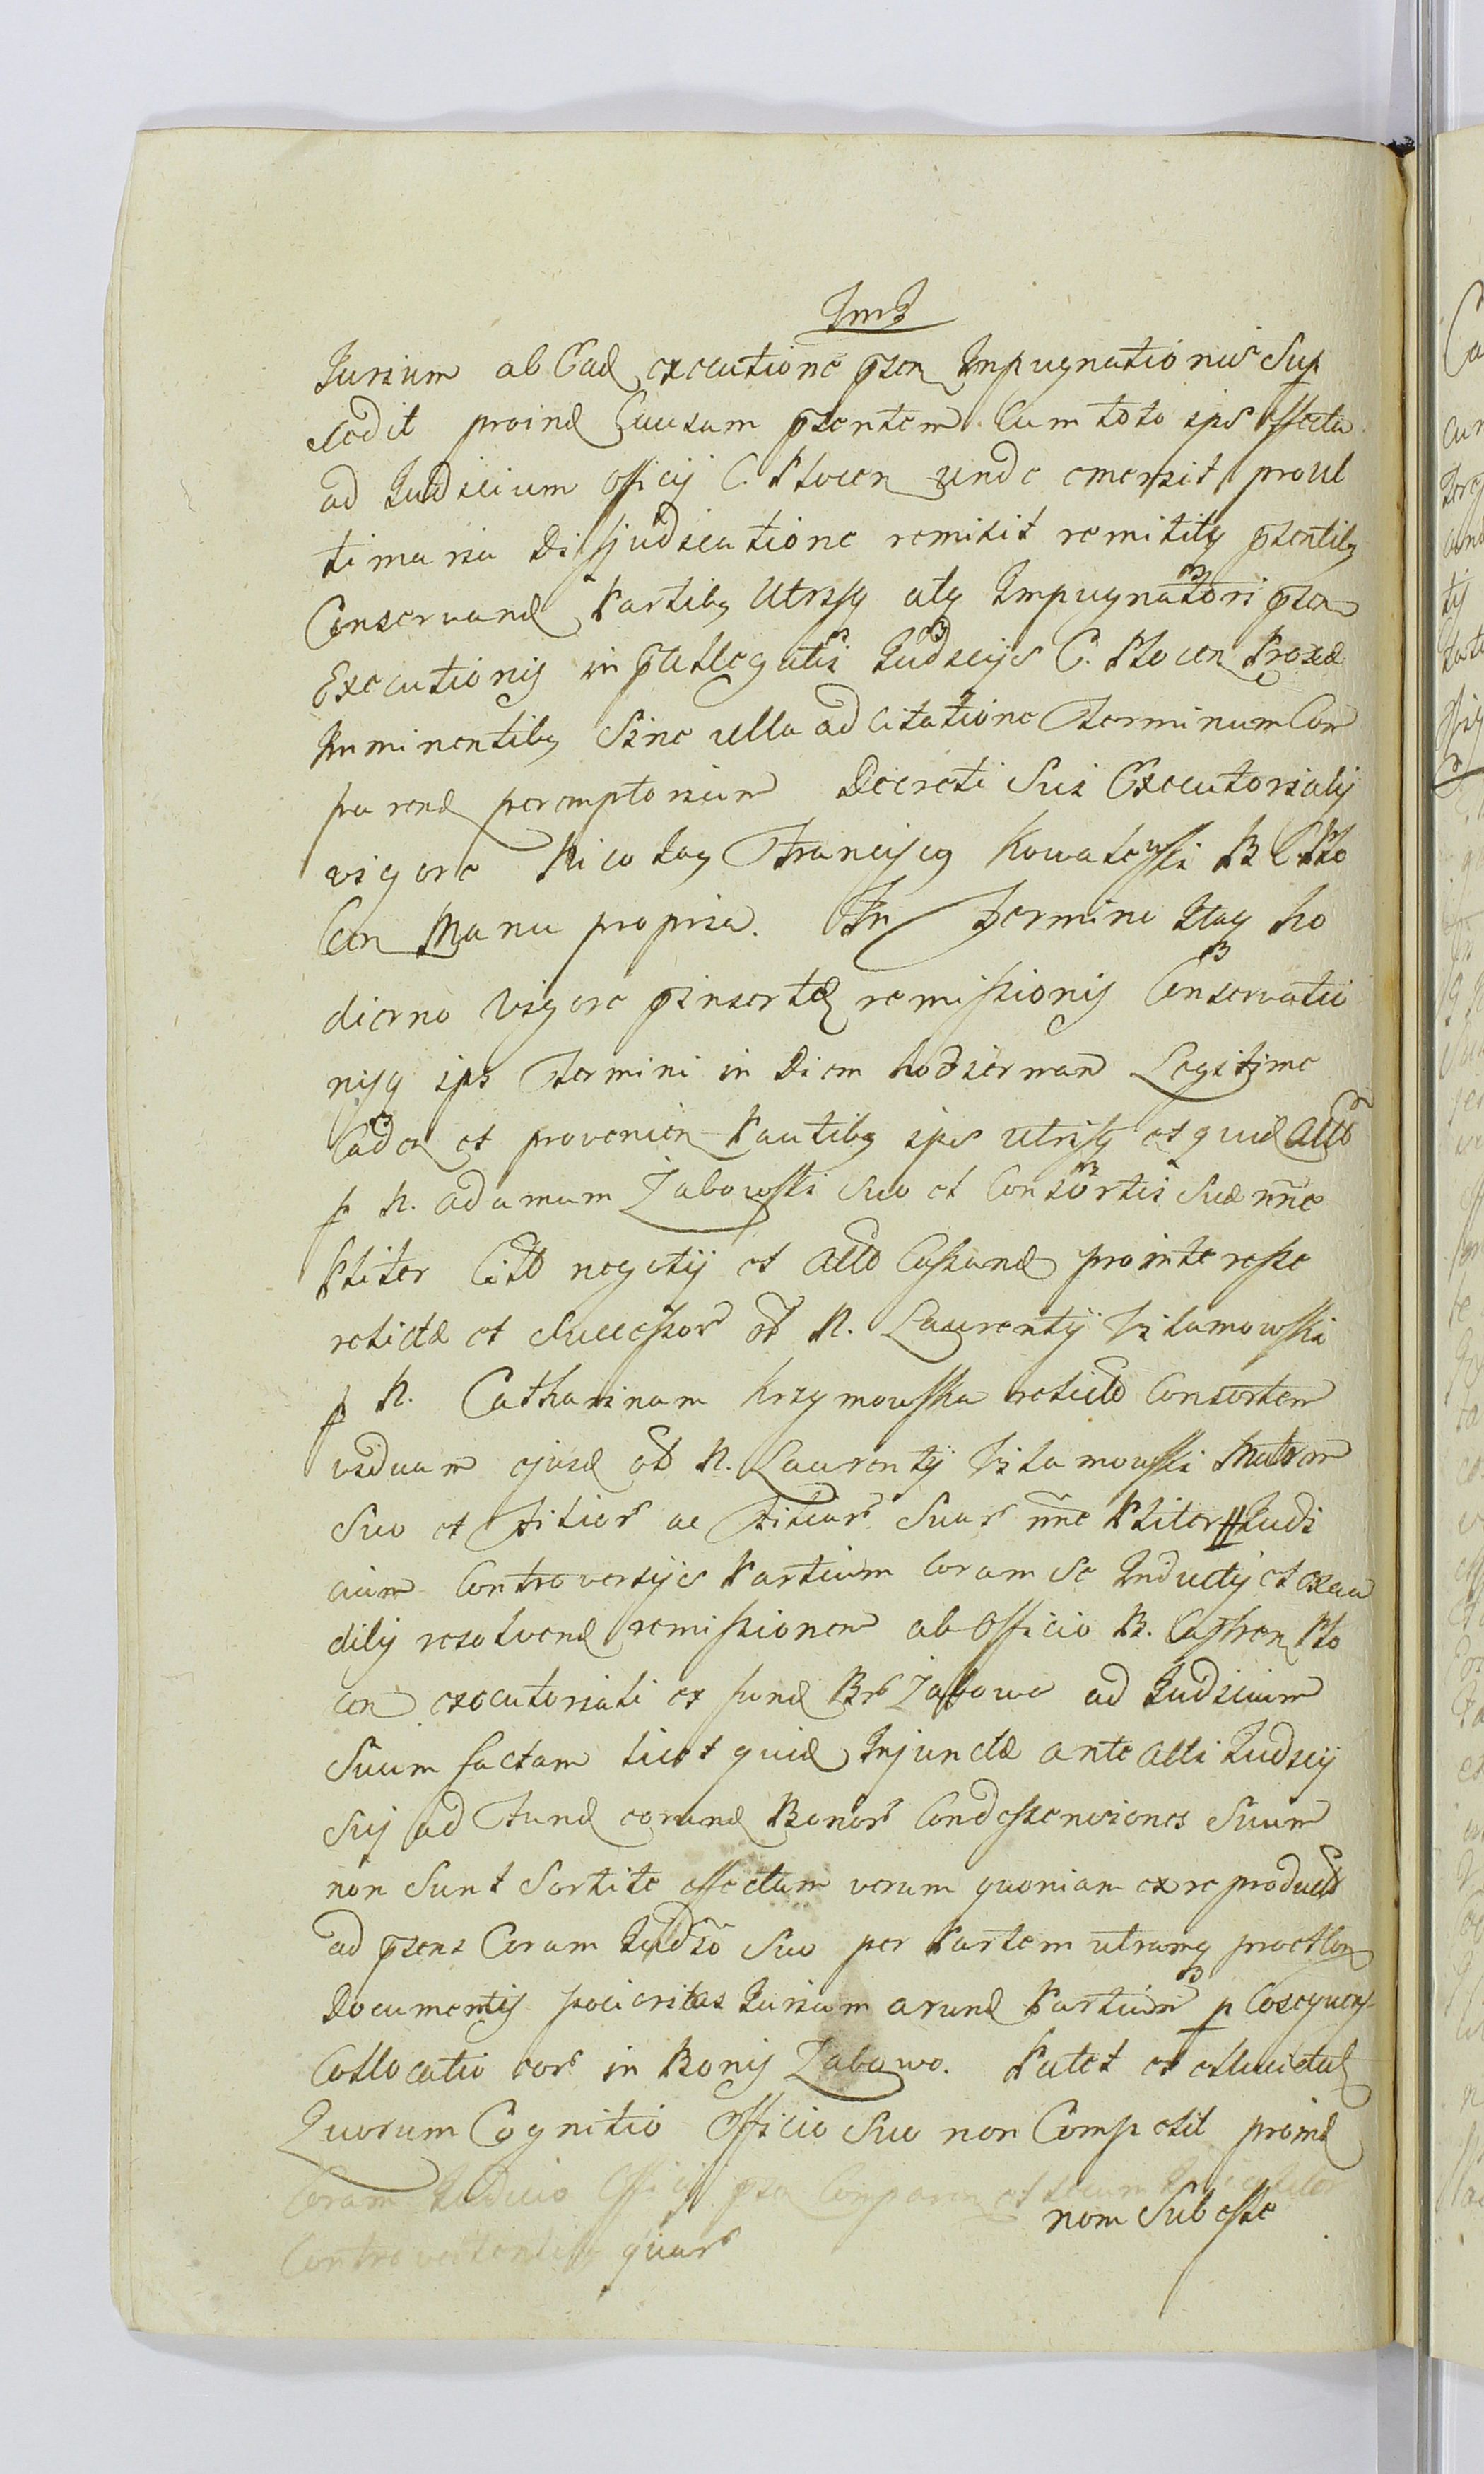 Jurium ab Ead executione psen Impugnationis Sup
sedit proind Causam psentem Cum toto ips effectu
ad Judicium officij C. Plocen unde emersit pro ul
timaria Disjudicatione remisit remititq psentibq
Conservand Partibq Utrisq atq Impugnatori psen
Executionis in praeallegatis Judicijs C. Plocen Proxae
Imminentibq Sine ulla adcitatione Terminum Com
parend peremptorium Decreti Sui Executorialis
vigore Nicolaq Franciscq Kowalewski B C Plo
Cen Manu propria. In Termino Itaq ho
dierno Vigore psinsertae remissionis Conservatio
nisq ips Termini in Diem hodiernam Legitime
Caden et provenien Partibq ips utrisq et quid Act
p N. adamum Zabowski Suo et Consortis Suae nne
Pliter Citt negotij et Act Cassand pro interesse
relictae et Successor ol N. Laurentij Izlamowski
p N. Catharinam Krzymowska relict Consortem
viduam ejusd ol N. Laurentij Izlamowski Matrem
Suo et Filior ac Filiar Suar nne Pliter Judi
cium Controversijs Partium Coram Se Inductis et exau
ditis resolvend remissionem ab Officio B. Castren Plo
cen executoriali ex fund Br Zabowo ad Judicium
Suum factam licet quid Injunctae ante alti Judicij
Sui ad Fund eorund Bonor Condessensiones Suum
non Sunt Sortite effectum verum quoniam ex re product
ad psens Coram Judicio Suo per Partem utramq
Documentis Jurium arund Partium p Coseqens
Collocatio eor in Bonis Zabowo. Patet et
Quorum Cognitio Officio Suo non Competit proind
Coram Judicio Officij psen Comparen et
Controvertentibq quar
nom Subesse